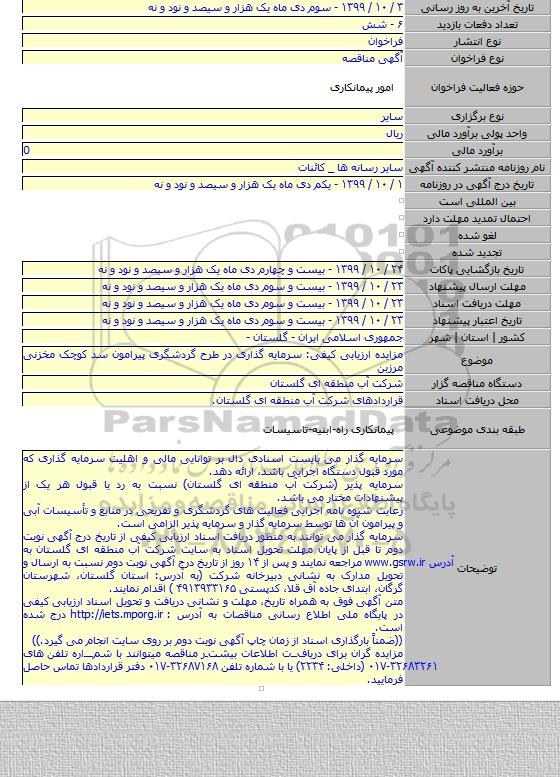 تاریخ آخرین به روز رسانی ۳ / ۱۰ / ۱۳۹۹ - سوم دی ماه یک هزار و سیصد و نود و نه
تعداد دفعات بازدید ۶ - شش
نوع انتشار فراخوان
نوع فراخوان آگهی مناقصه
حوزه فعالیت فراخوان امور پیمانکاری
نوع برگزاری سایر
واحد پولی برآورد مالی ریال
برآورد مالی 0
نام روزنامه منتشر کننده آگهی سایر رسانه ها _ کائنات
تاریخ درج آگهی در روزنامه ۱ / ۱۰ / ۱۳۹۹ - یکم دی ماه یک هزار و سیصد و نود و نه
بین المللی است
احتمال تمدید مهلت دارد
لغو شده
تجدید شده
تاریخ بازگشایی پاکات ۲۴ / ۱۰ / ۱۳۹۹ - بیست و چهارم دی ماه یک هزار و سیصد و نود و نه
مهلت ارسال پیشنهاد ۲۳ / ۱۰ / ۱۳۹۹ - بیست و سوم دی ماه یک هزار و سیصد و نود و نه
مهلت دریافت اسناد ۲۳ / ۱۰ / ۱۳۹۹ - بیست و سوم دی ماه یک هزار و سیصد و نود و نه
تاریخ اعتبار پیشنهاد ۲۳ / ۱۰ / ۱۳۹۹ - بیست و سوم دی ماه یک هزار و سیصد و نود و نه
کشور | استان | شهر جمهوری اسلامی ایران - گلستان -
موضوع مزایده ارزیابی کیفی: سرمایه گذاری در طرح گردشگری پیرامون سد کوچک مخزنی
مرزبن
دستگاه مناقصه گزار شرکت آب منطقه ای گلستان
محل دریافت اسناد قراردادهای شرکت آب منطقه ای گلستان
ParsNamadData
طبقه بندی موضوعی پیمانکاری راه-ابنیه-تاسیسات
توضیحات
سرمایه گذار می بایست اسنادی دال بر توانایی مالی و اهلیت سرمایه گذاری که
مورد قبول دستگاه اجرایی باشد، ارائه دهد.
سرمایه پذیر (شرکت آب منطقه ای گلستان) نسبت به رد یا قبول هر یک از
پیشنهادات مختار می باشد.
رعایت شیوه نامه اجرایی فعالیت های گردشگری و تفریحی در منابع و تأسیسات آبی
و پیرامون آن ها توسط سرمایه گذار و سرمایه پذیر الزامی است.
سرمایه گذار می توانند به منظور دریافت اسناد ارزیابی کیفی از تاریخ درج آگهی نوبت
دوم تا قبل از پایان مهلت تحویل اسناد به سایت شرکت آب منطقه ای گلستان به
آدرس www.gsrw.ir مراجعه نمایند و پس از ۱۴ روز از تاریخ درج آگهی نوبت دوم نسبت به ارسال و
تحویل مدارک به نشانی دبیرخانه شرکت (به آدرس: استان گلستان، شهرستان
گرگان، ابتدای جاده آق قلا، کدپستی ۴۹۱۳۹۳۳۱۶۵ ) اقدام نمایند.
متن آگهی فوق به همراه تاریخ، مهلت و نشانی دریافت و تحویل اسناد ارزیابی کیفی
در پایگاه ملی اطلاع رسانی مناقصات به آدرس : http://iets.mporg.ir درج شده
است.
((ضمناً بارگذاری اسناد از زمان چاپ آگهی نوبت دوم بر روی سایت انجام می گیرد.))
مزایده گران برای دریافت اطلاعات بیشتر مناقصه میتوانند با شماره تلفن های
۰۱۷-۳۲۶۸۳۲۶۱ (داخلی: ۲۲۳۴) یا با شماره تلفن ۳۲۶۸۷۱۶۸-۰۱۷ دفتر قراردادها تماس حاصل
فرمایید.